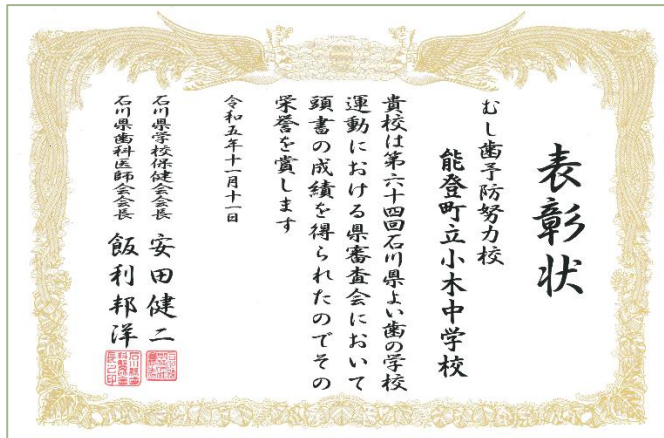 表彰状
むし歯予防努力校
能登町立小木中学校
貴校は第六十四回石川県よい歯の学校
運動における県審査会において
頭書の成績を得られたのでその
栄誉を賞します
令和五年十一月十一日
石川県学校保健会会長 安田健二
石川県歯科医師会会長 飯利邦洋